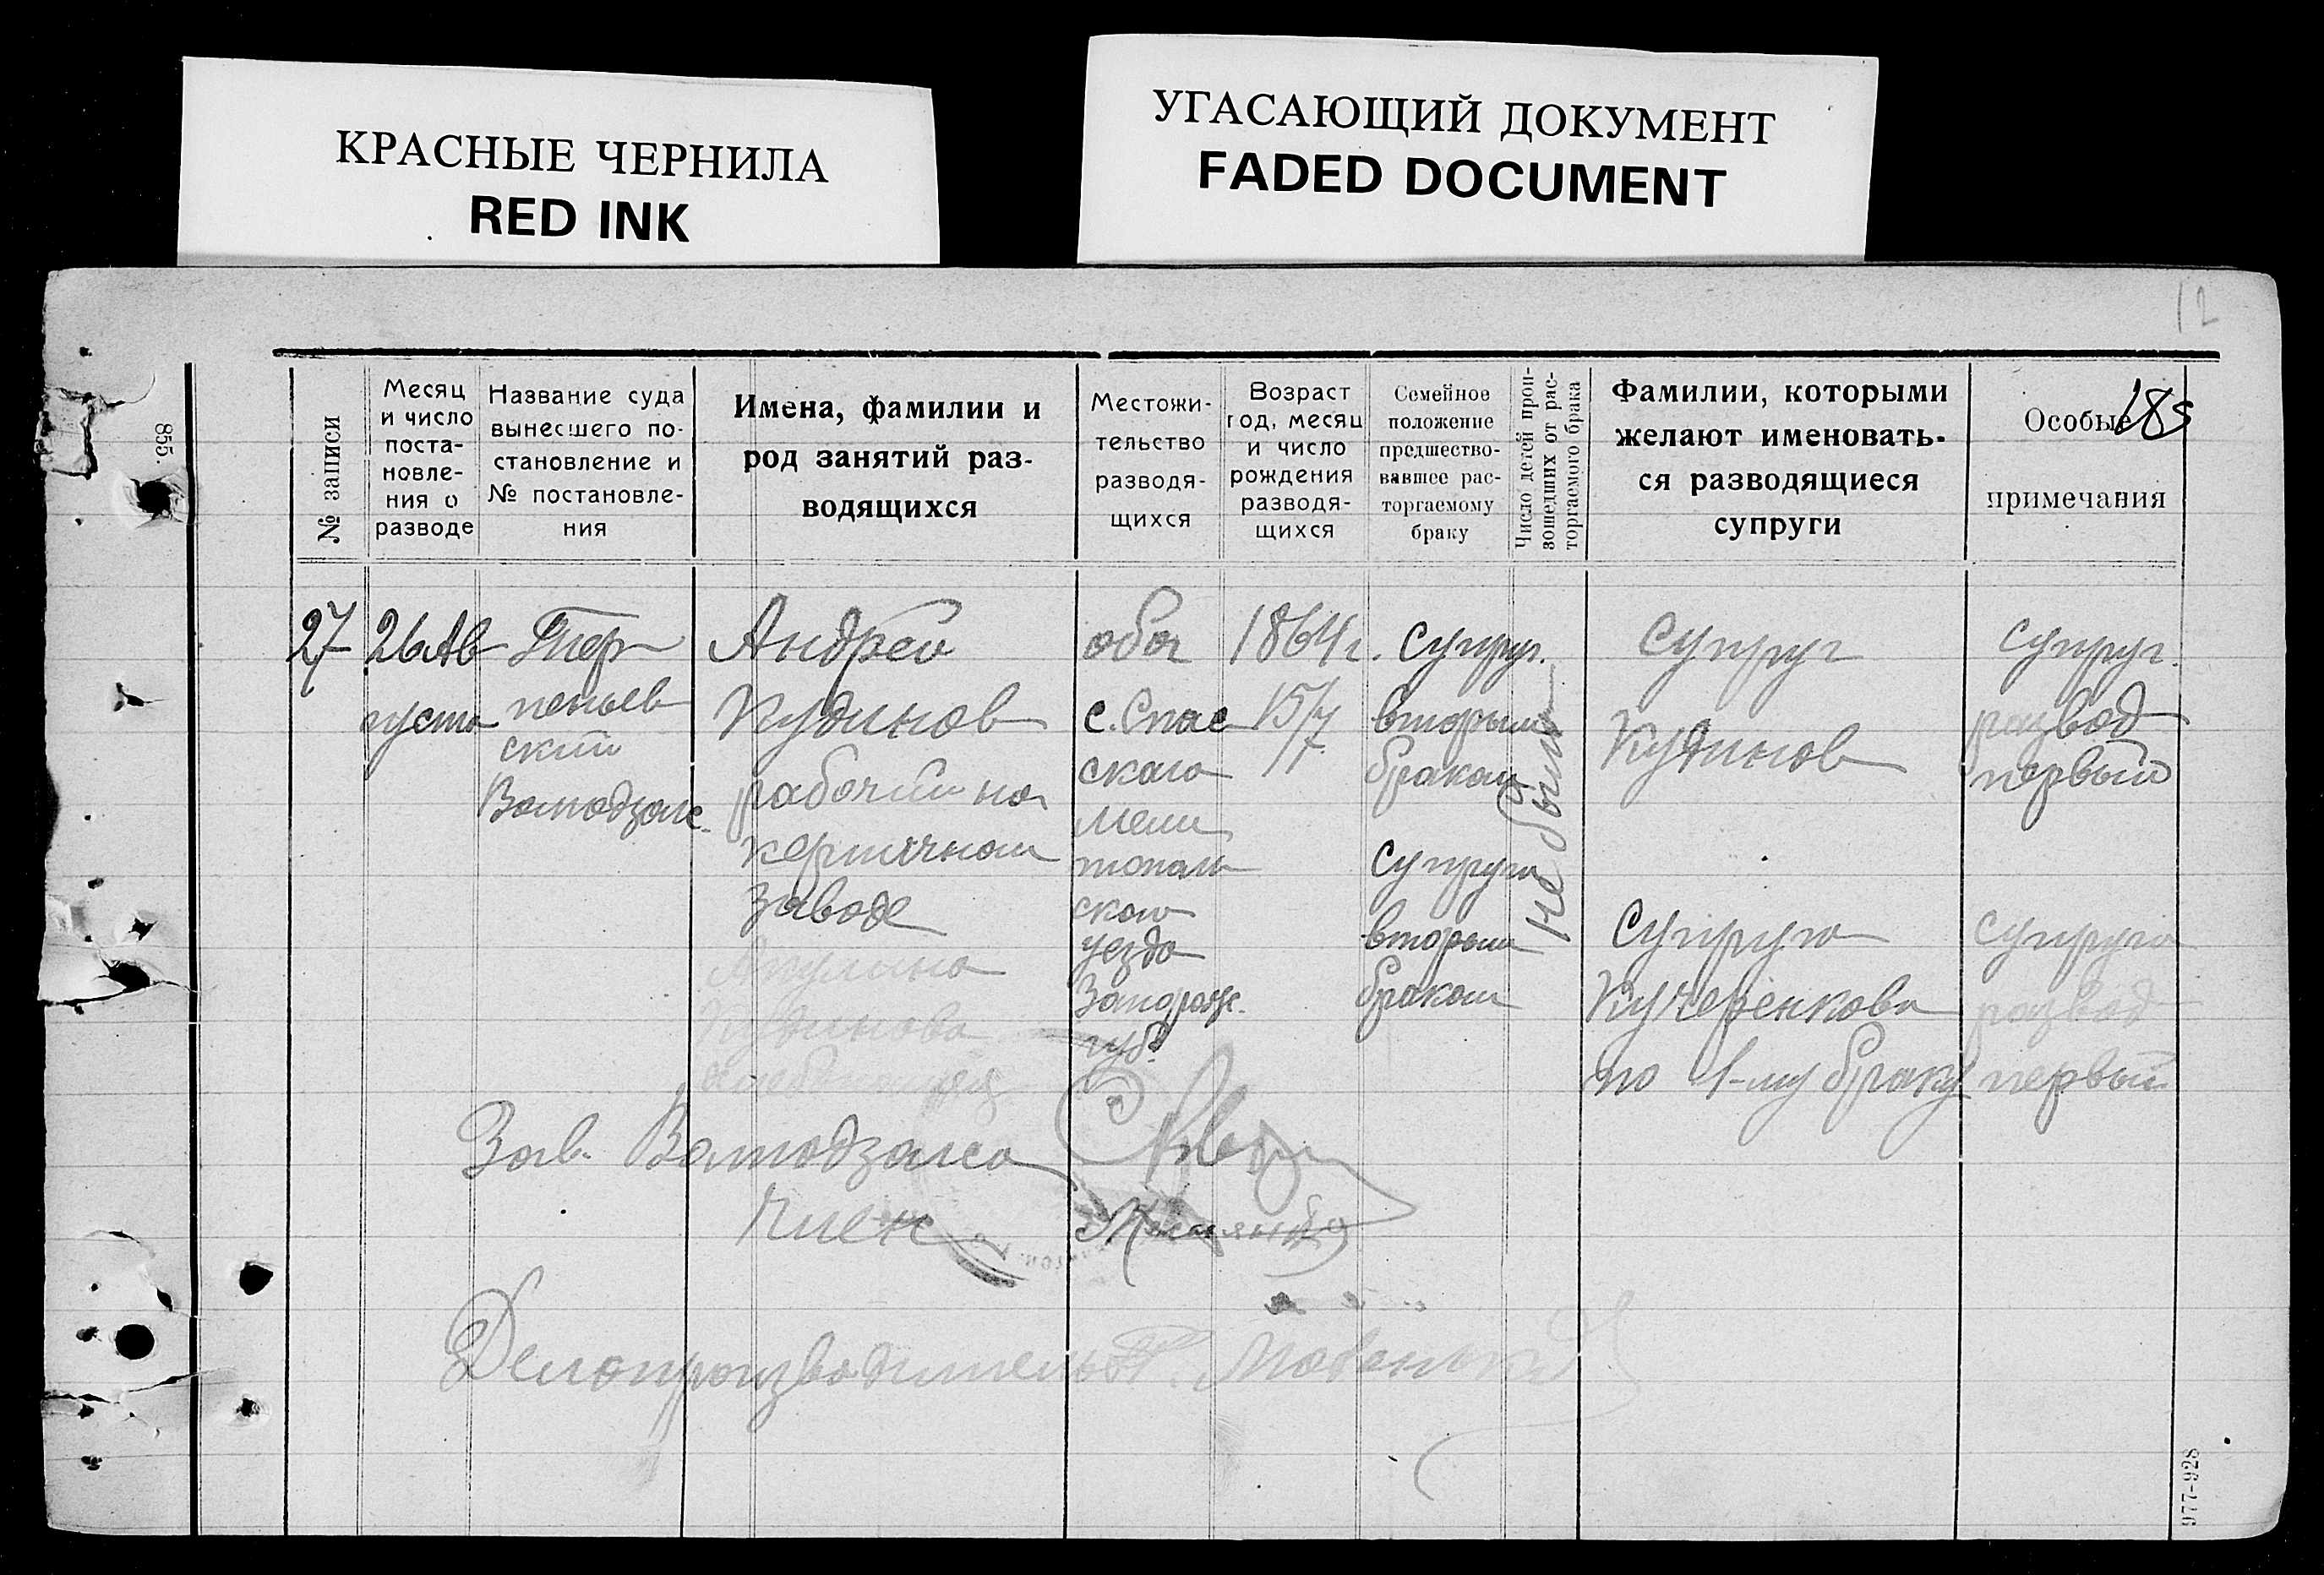 КРАСНЫЕ ЧЕРНИЛА
RED INK
УГАСАЮЩИЙ ДОКУМЕНТ
FADED DOCUMENT
12
855.
№ записи
Месяц
и число
поста-
новле-
ния о
разводе
Название суда
вынесшего по-
становление и
№ постановле-
ния
Имена, фамилии и
род занятий раз-
водящихся
Местожи-
тельство
разводя-
щихся
Возраст
год, месяц
и число
рождения
разводя-
щихся
Семейное
положение
предшество-
вавшее рас-
торгаемому
браку
Число детей прои-
зошедших от рас-
торгаемого брака
Фамилии, которыми
желают именовать-
ся разводящиеся
супруги
Особые
примечания
185
27
26 Ав
густа
Тер
пеньев
ский
Волмодзагс.
Андрей
Кудинов
рабочий на
керпичном
заводе
Акулина
Кудинова
оба
с. Спас
ского
Мели
топол
ского
уезда
Запорож.
губ.
1864 г.
15/7
Супруг.
вторым
браком
Супруга
вторым
браком
не было
Супруг
Кудинов
Супруга
Кучеренкова
по 1-му браку
Супруг.
развод
первый
Супруга
развод
первый
Зав. Волмодзагса
Член
Делопроизводитель
977-928